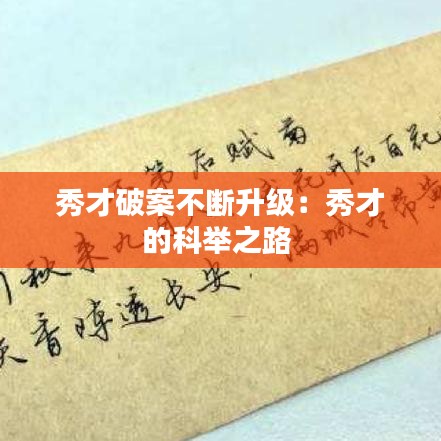 第后赋菊
秋来九 花开后百花
秀才破案不断升级：秀才
的科举之路
天香阵透长安 满城尽带黄